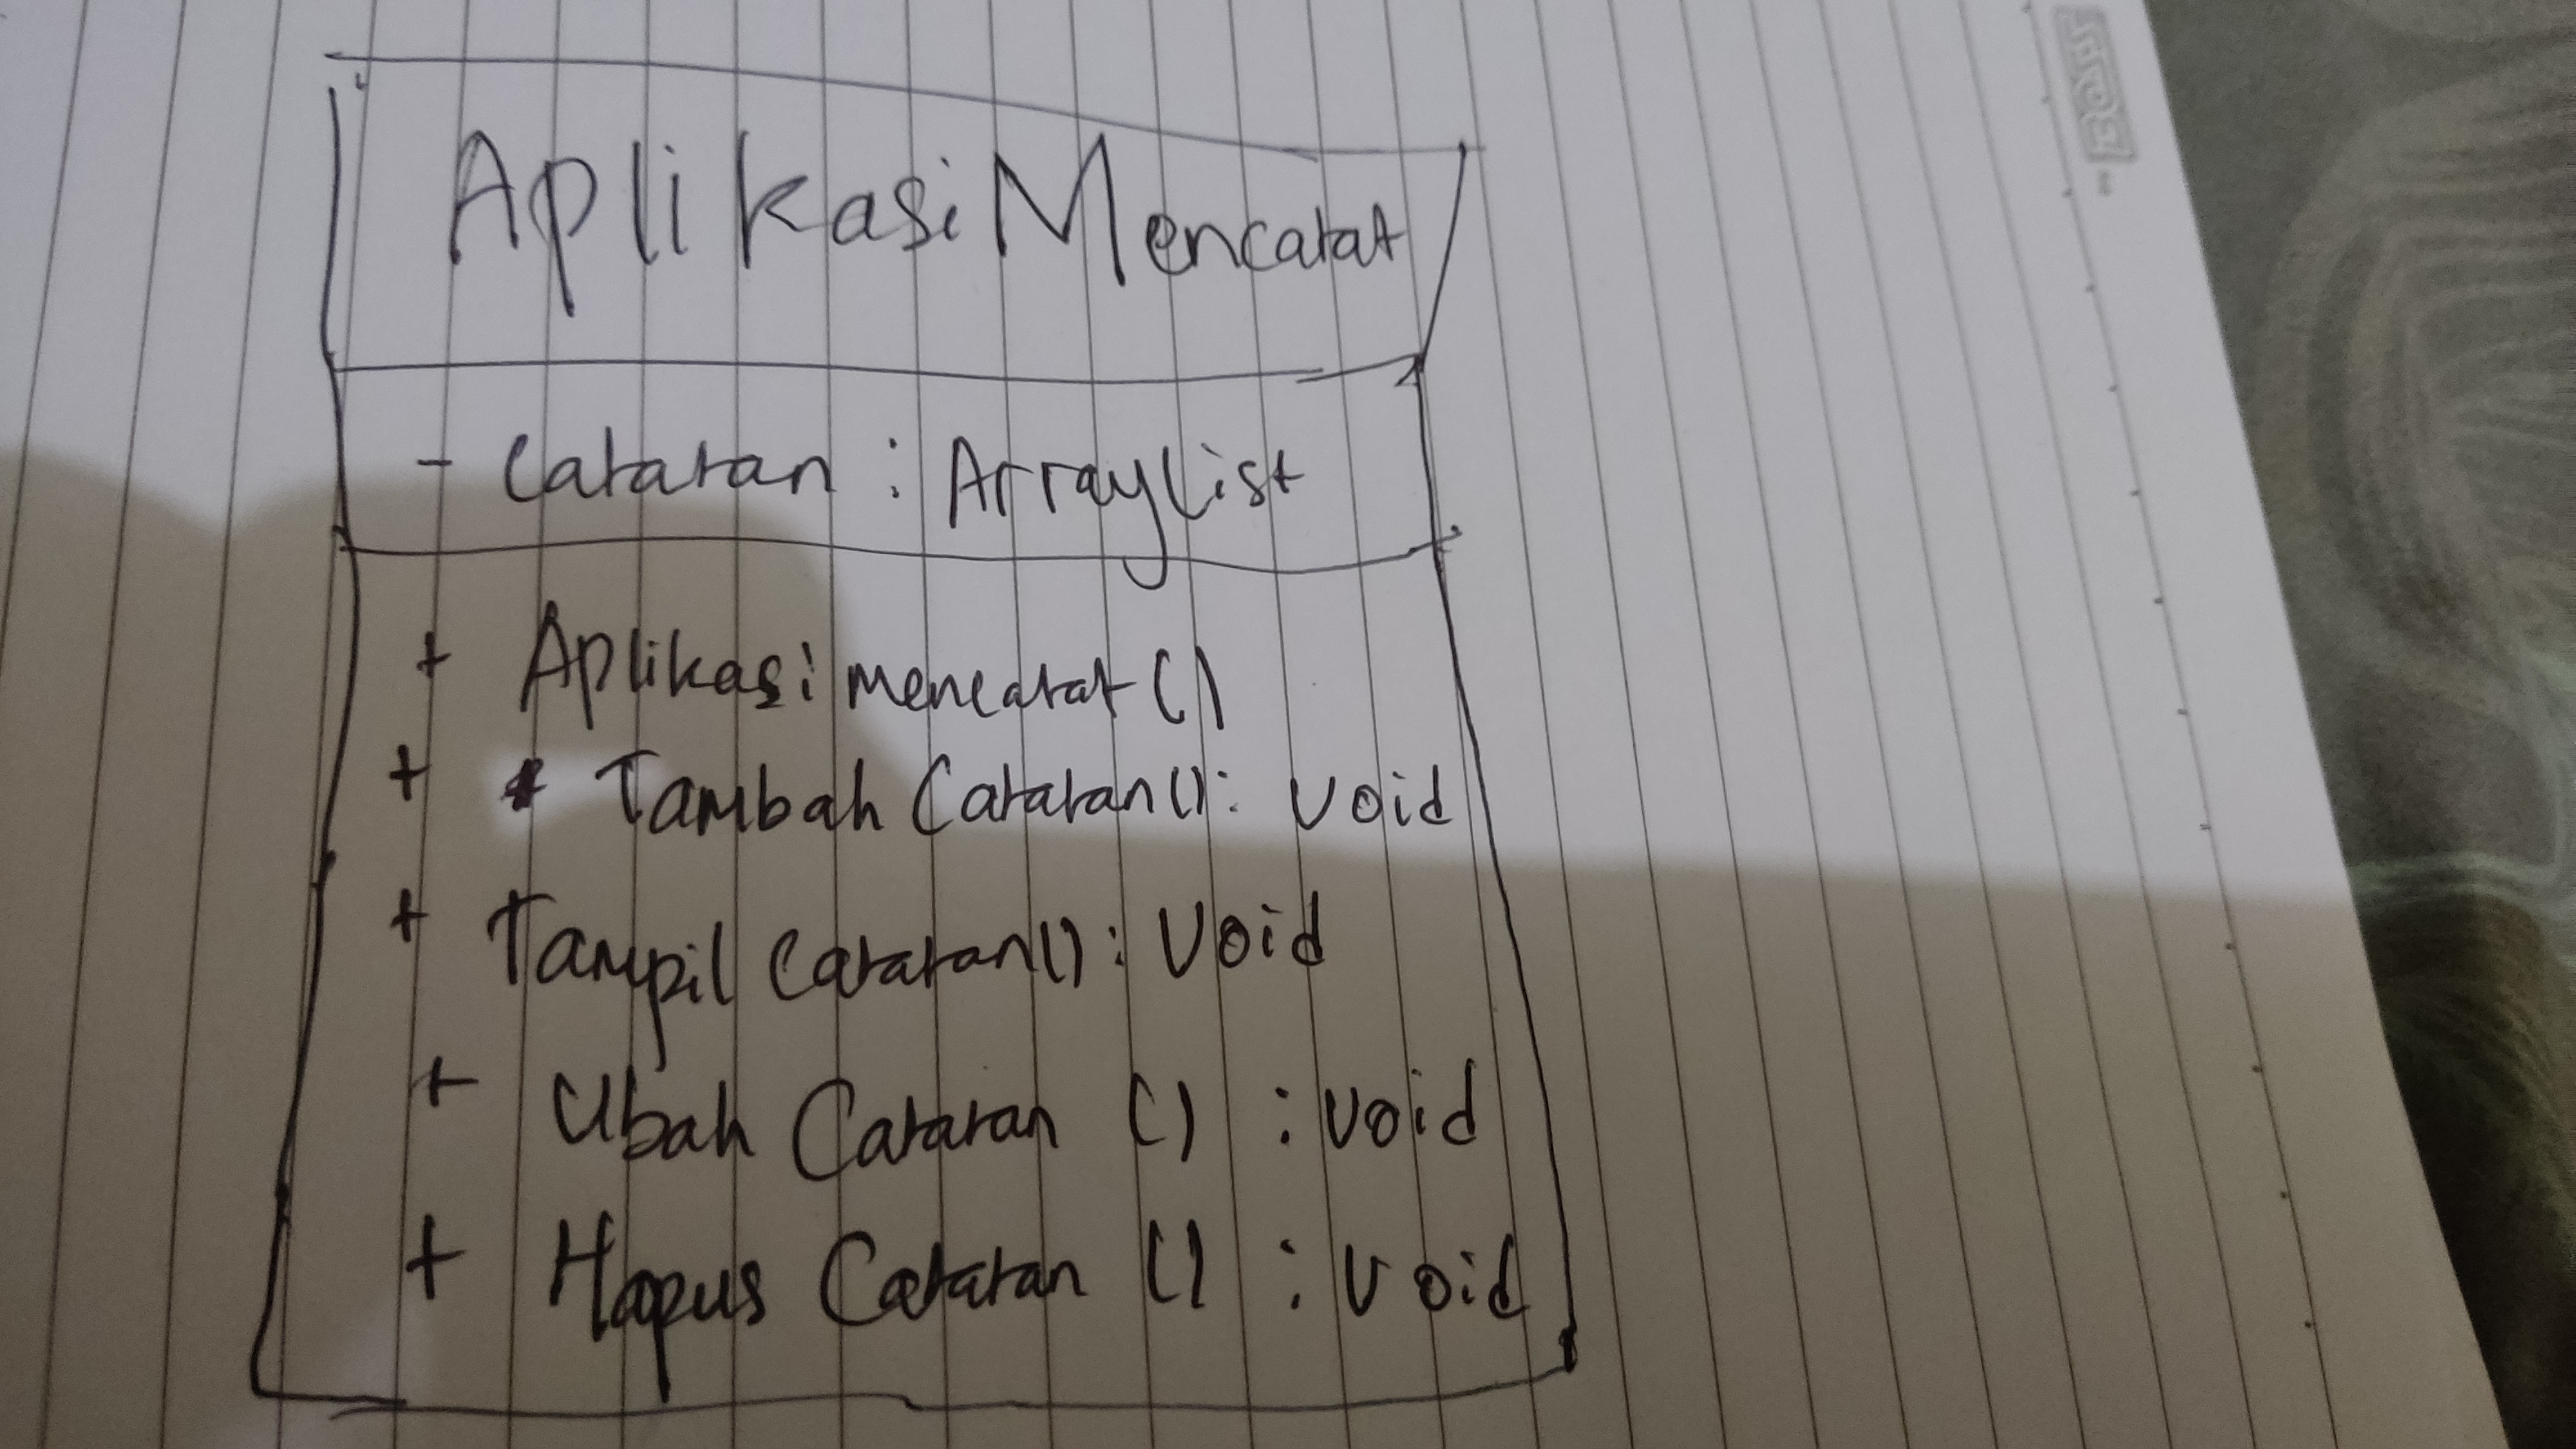 AplikasiMencatat
- Catatan : ArrayList
+ Aplikasi mencatat ()
+ Tambah Catatan() : void
+ Tampil Catatan() : Void
+ Ubah Catatan () : void
+ Hapus Catatan () : void